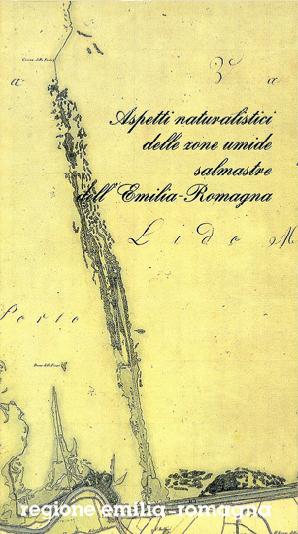 3ª a
a
Aspetti naturalistici
delle zone umide
salmastre
dell'Emilia-Romagna
Lido M
Porto
regione emilia-romagna